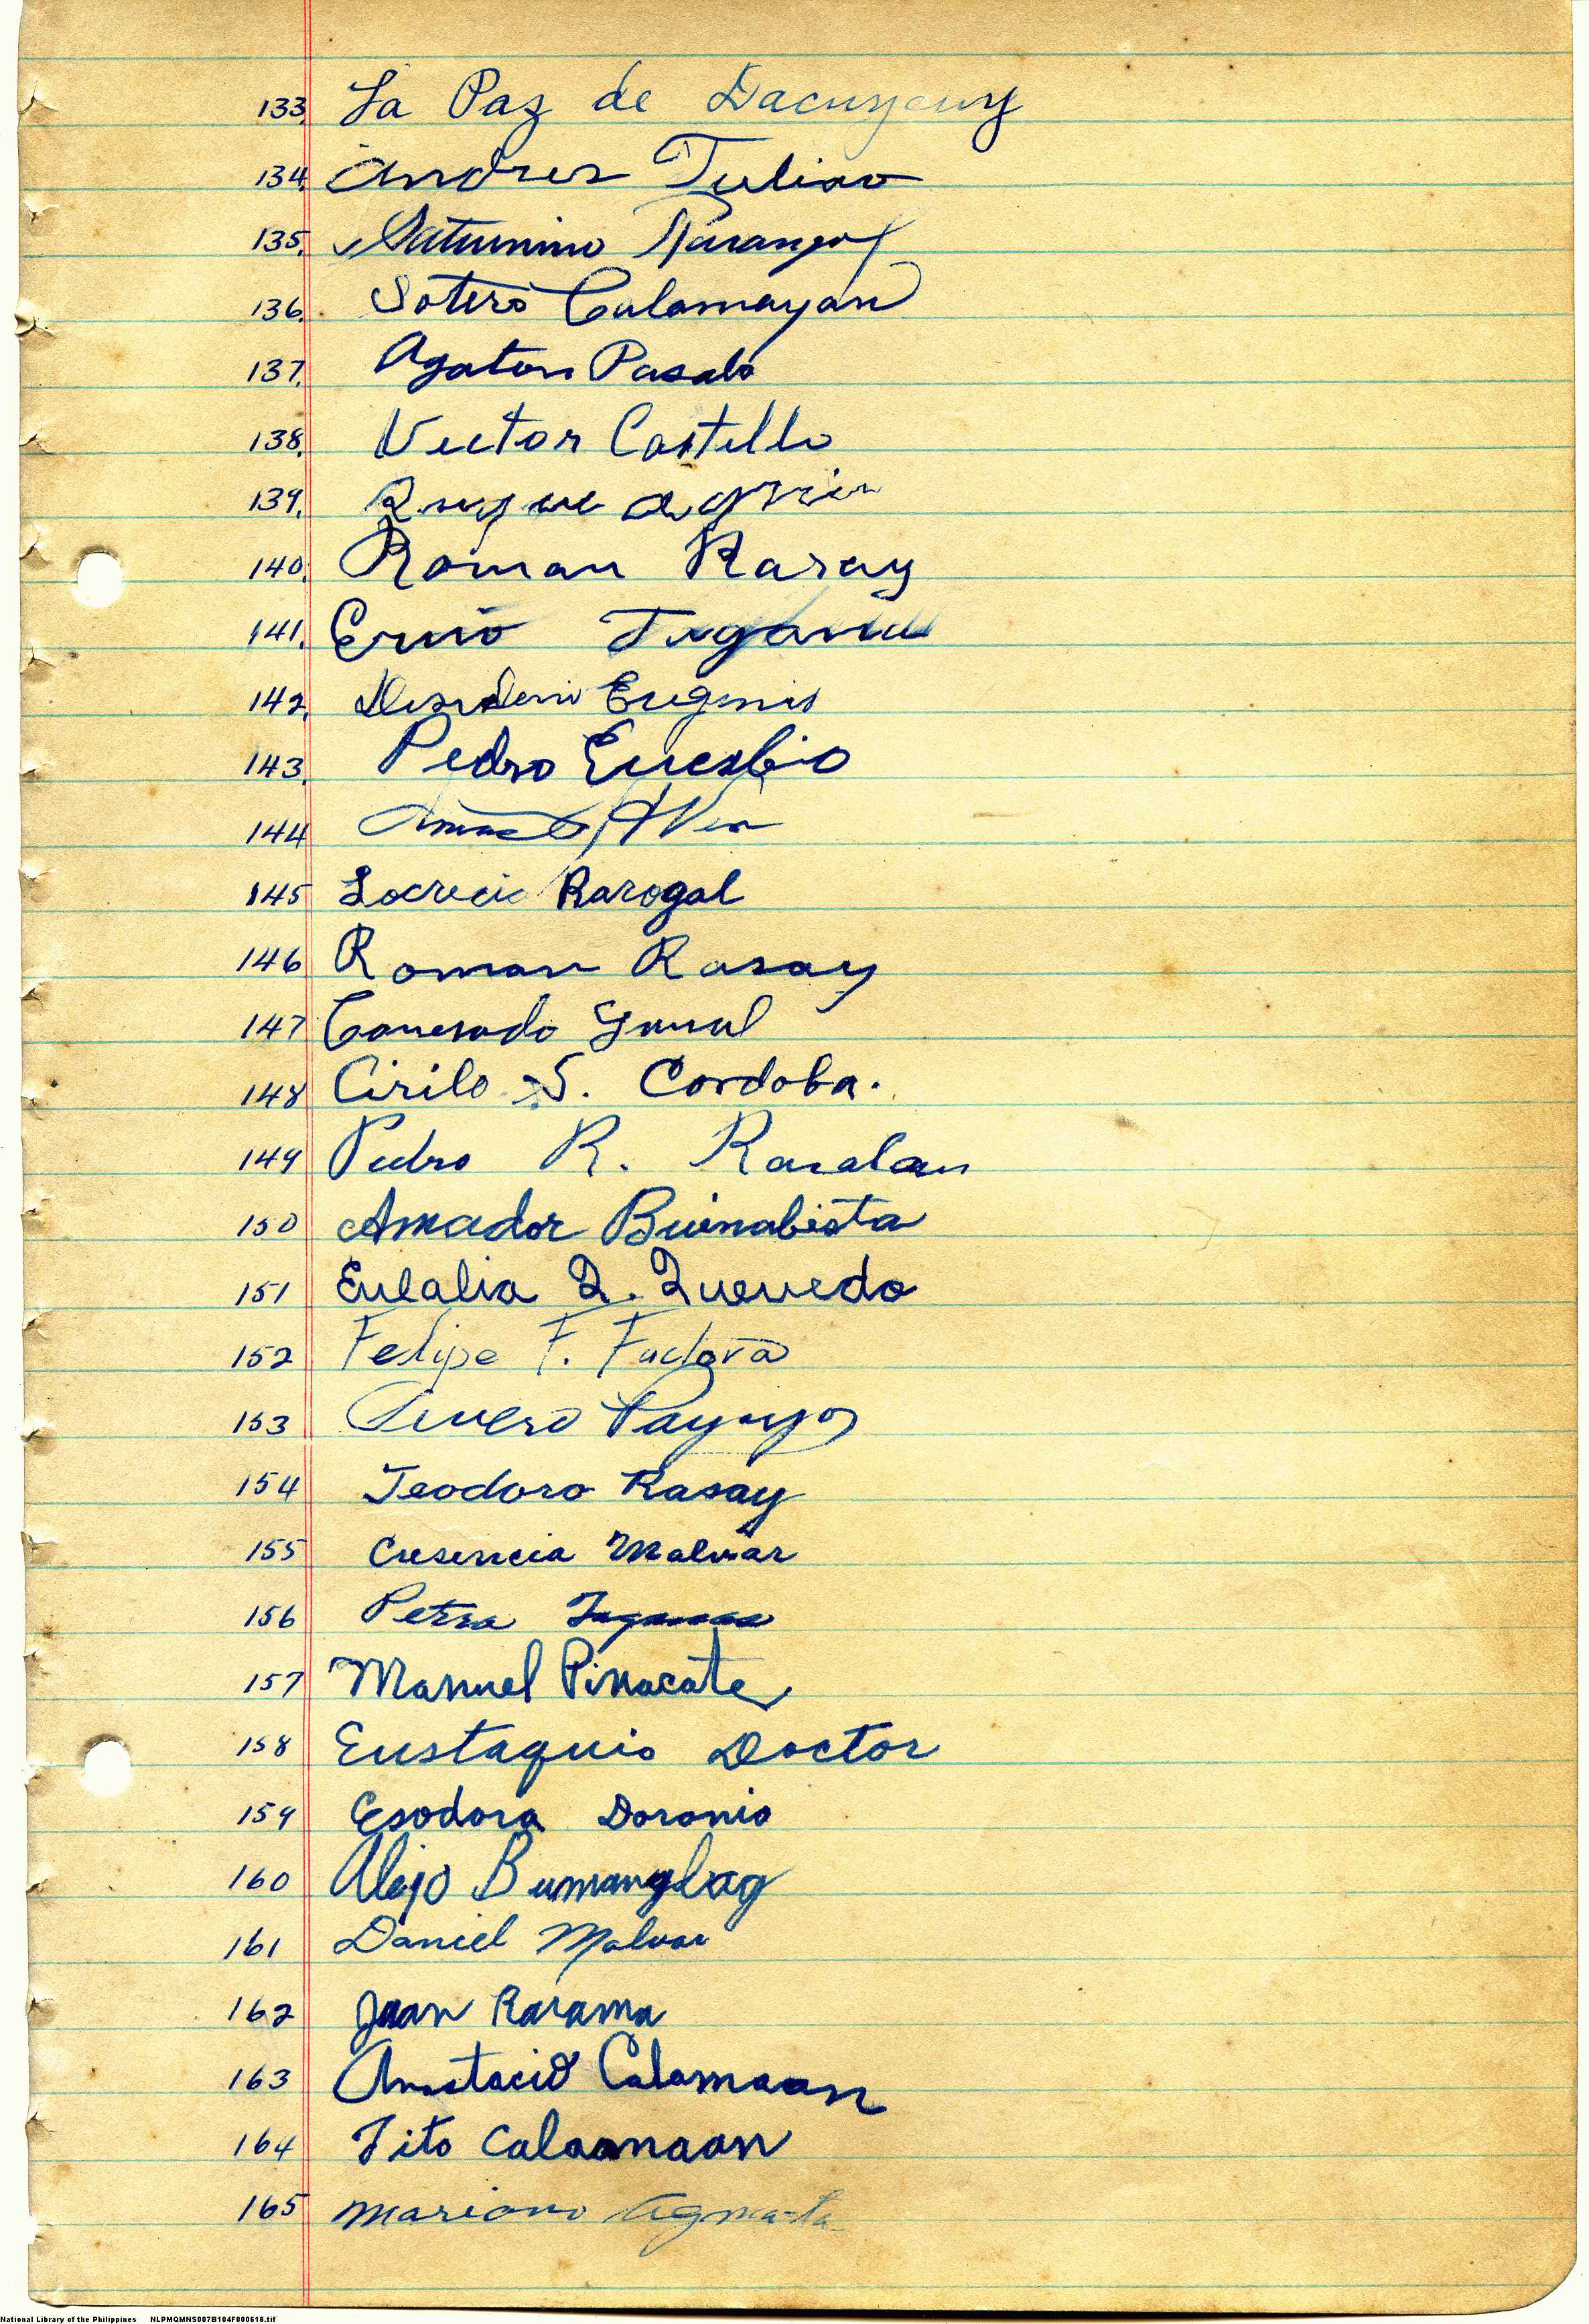 133. La Paz de Dacuycuy
134. Andres Tuliao
135. Saturnino
136. Sotero Calamayan
137. Agaton Pasalo
138. Vector Castillo
139. Ruque
140. Roman Rasay
141. Ermo
142. Eugenio
143. Pedro Eucsbio
144
145 Locrecio Rarogal
146 Roman Rasay
147
148 Cirilo S. Cordoba.
149 Pedro R. Raralan
150 Amador Buenabista
151 Eulalia Q. Quevedo
152 Felipe F.
153 Payoyo
154 Teodoro Rasay
155 Cresencia Malvar
156 Petra
157 Manuel Pinacate
158 Eustaquio Doctor
159 Esodora Doronio
160 Alejo Bumanglag
161 Daniel Malvar
162 Juan Rarama
163 Anastacio Calamaan
164 Tito Calaamaan
165 Mariano Agmata
National Library of the Philippines NLPMQMNS007B104F000618.tif